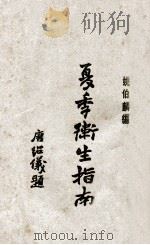 姚伯麟編
夏季衛生指南
唐紹儀題